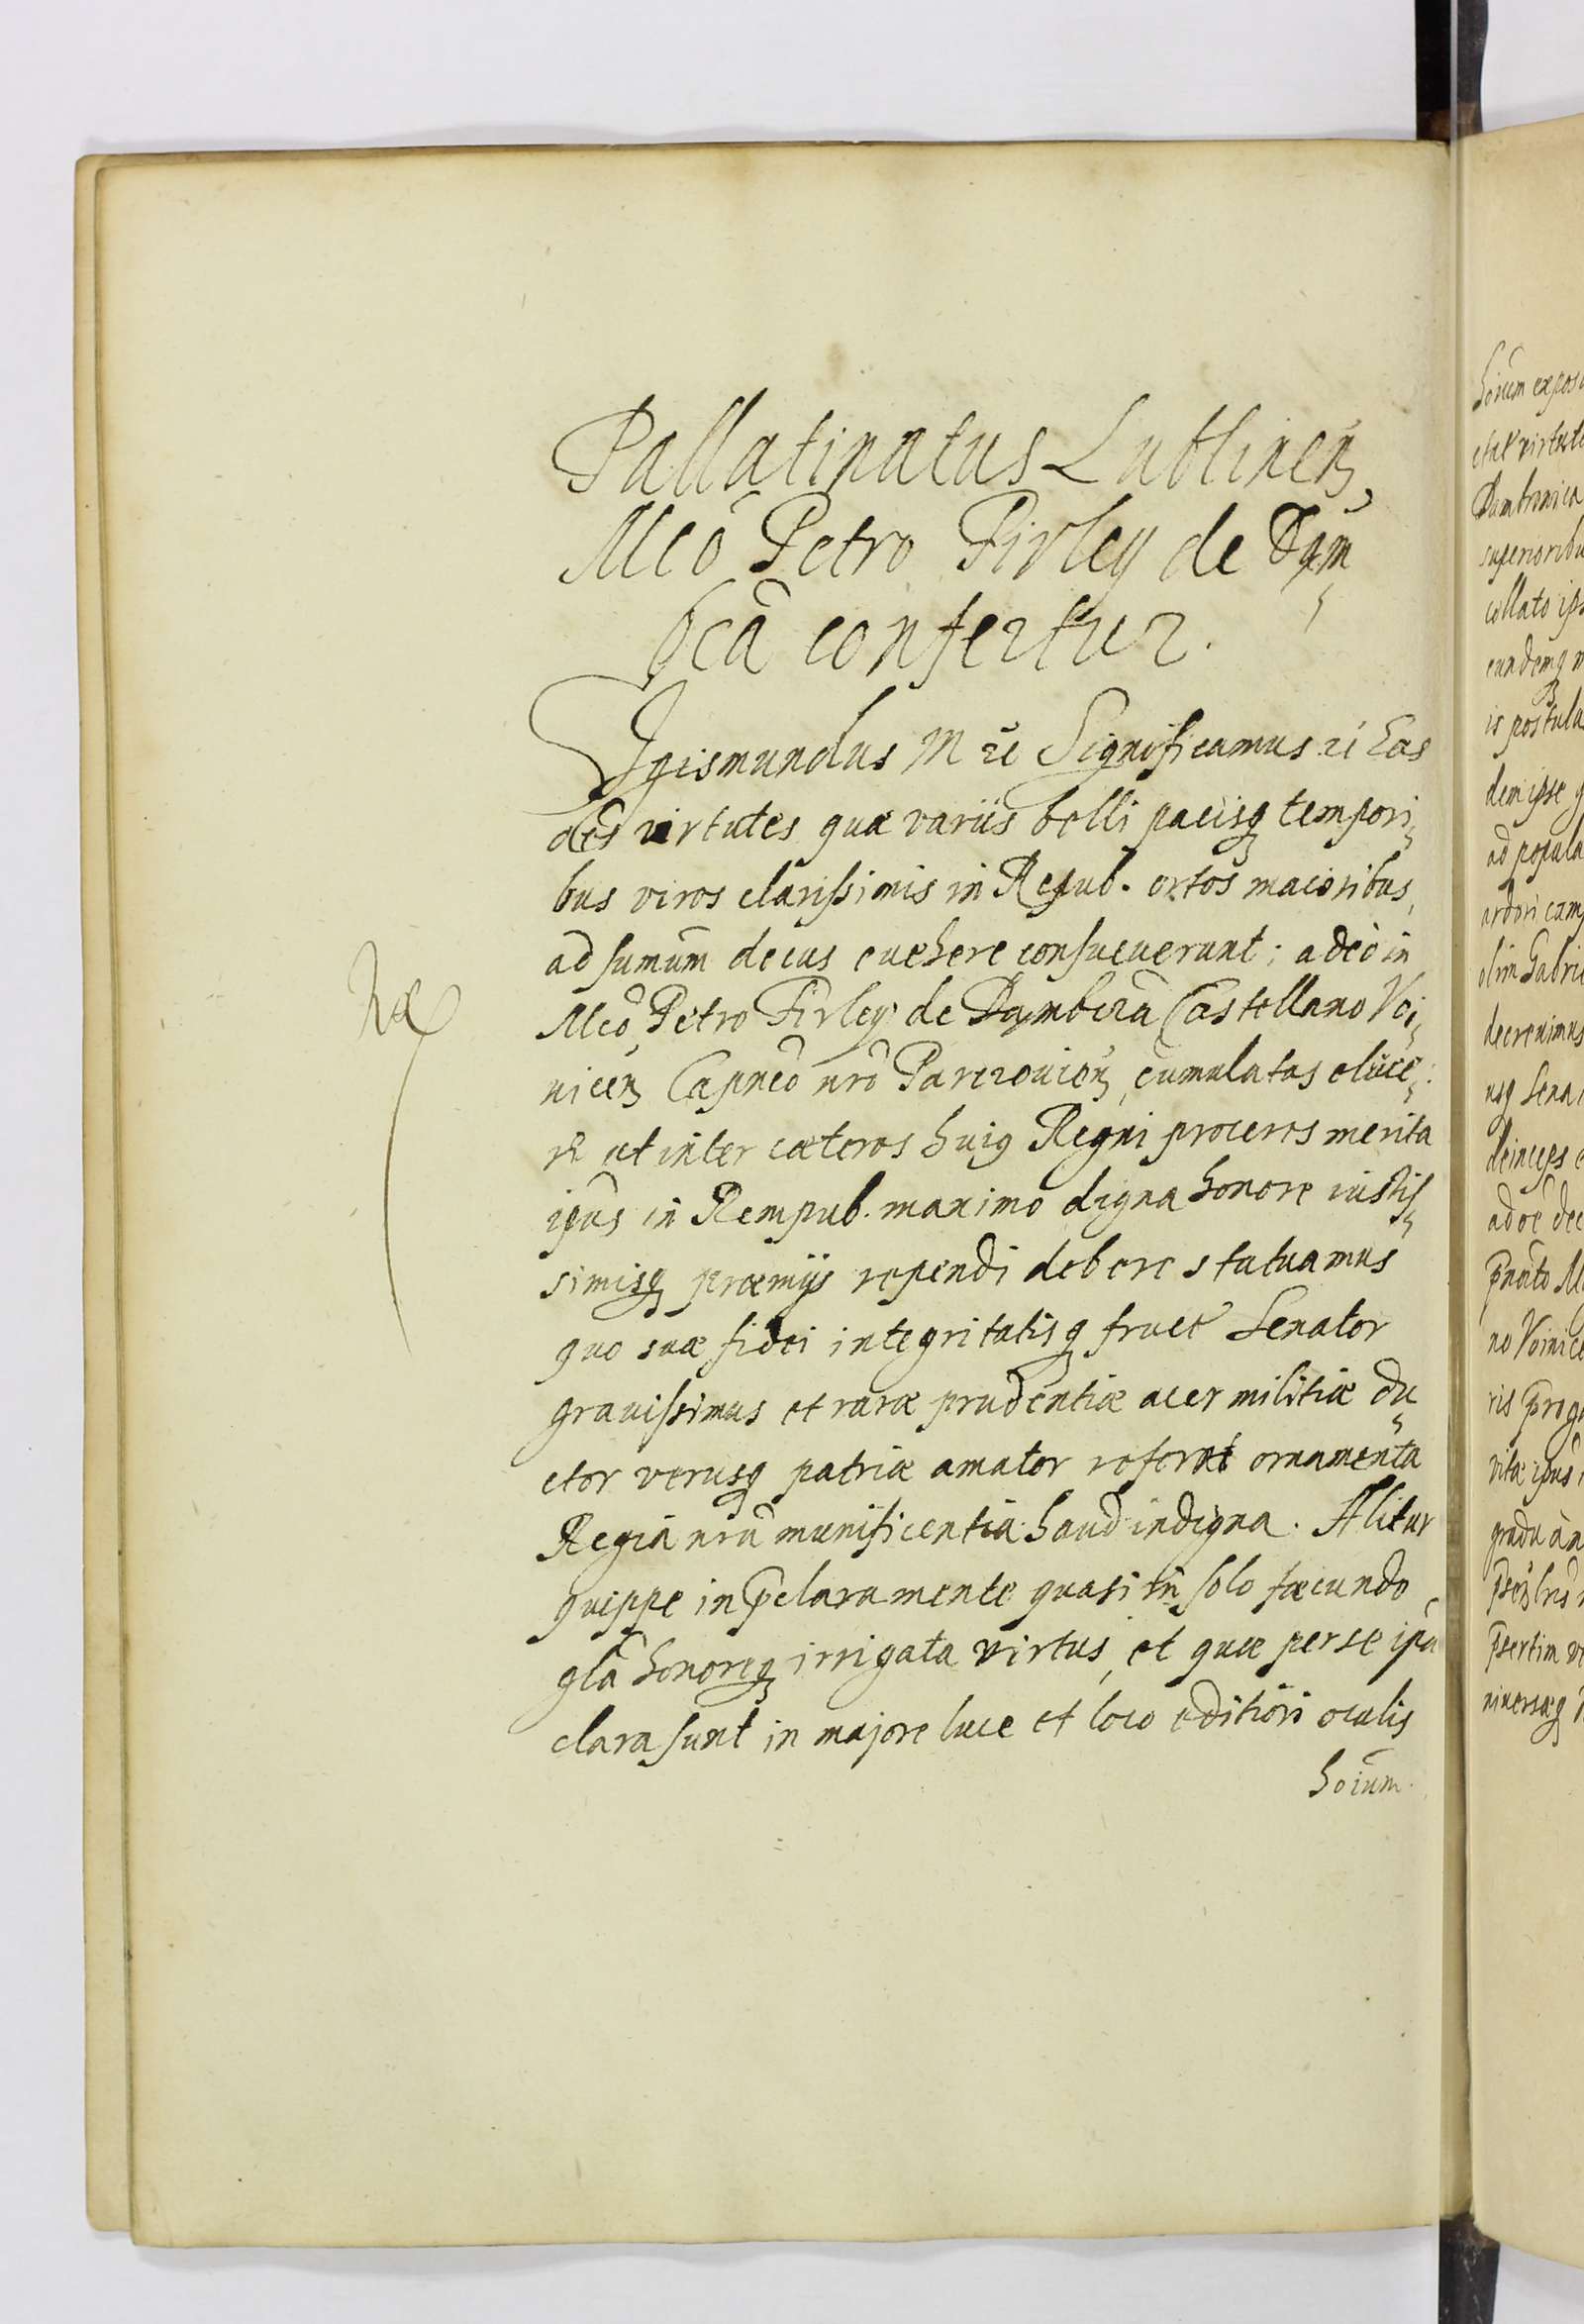 Pallatinatus Lublinen
Mco Petro Firley de Dąm
bcā confertur.
Sigismundus III rē Significamus rī Eas
oēs virtutes quæ variis belli pacisq tempori
bus viros clarissimis in Repub. ortos maioribus,
ad sumūm decus euehere consueuerunt; adeò in
Mcō Petro Firley de Dąmbrā Castellano Voi
nicen Capneō nrō Parczouien, cumulatas eluce
re ut inter cæteros huiq Regni proceres merita
ipūs in Rempub. maximo digna honore iustis
simisq præmijs rependi debere statuamus
quo suæ fidei integritatisq fruct Senator
grauissimus et raræ prudentiæ acer militiæ du
ctor verusq patriæ amator referat ornamenta
Regiâ nrā munificentia haud indigna. Alitur
quippe in p̄clara mente quasi in solo fæcundo
glā honoreq irrigata virtus, et quæ per se ipā
clara sunt in majore luce et loco editiori oculis
hoīum.
hoīum expos
Dambrouica
superioribu
collato ips
eundemq
is postula
dem ipse
ad popula
ardori
olim Gabrie
decreuimus
usq Sena
deinceps
ad oē dec
no Voinice
ris
vitæ ipūs
gradu
p̄sertim
niuersæq